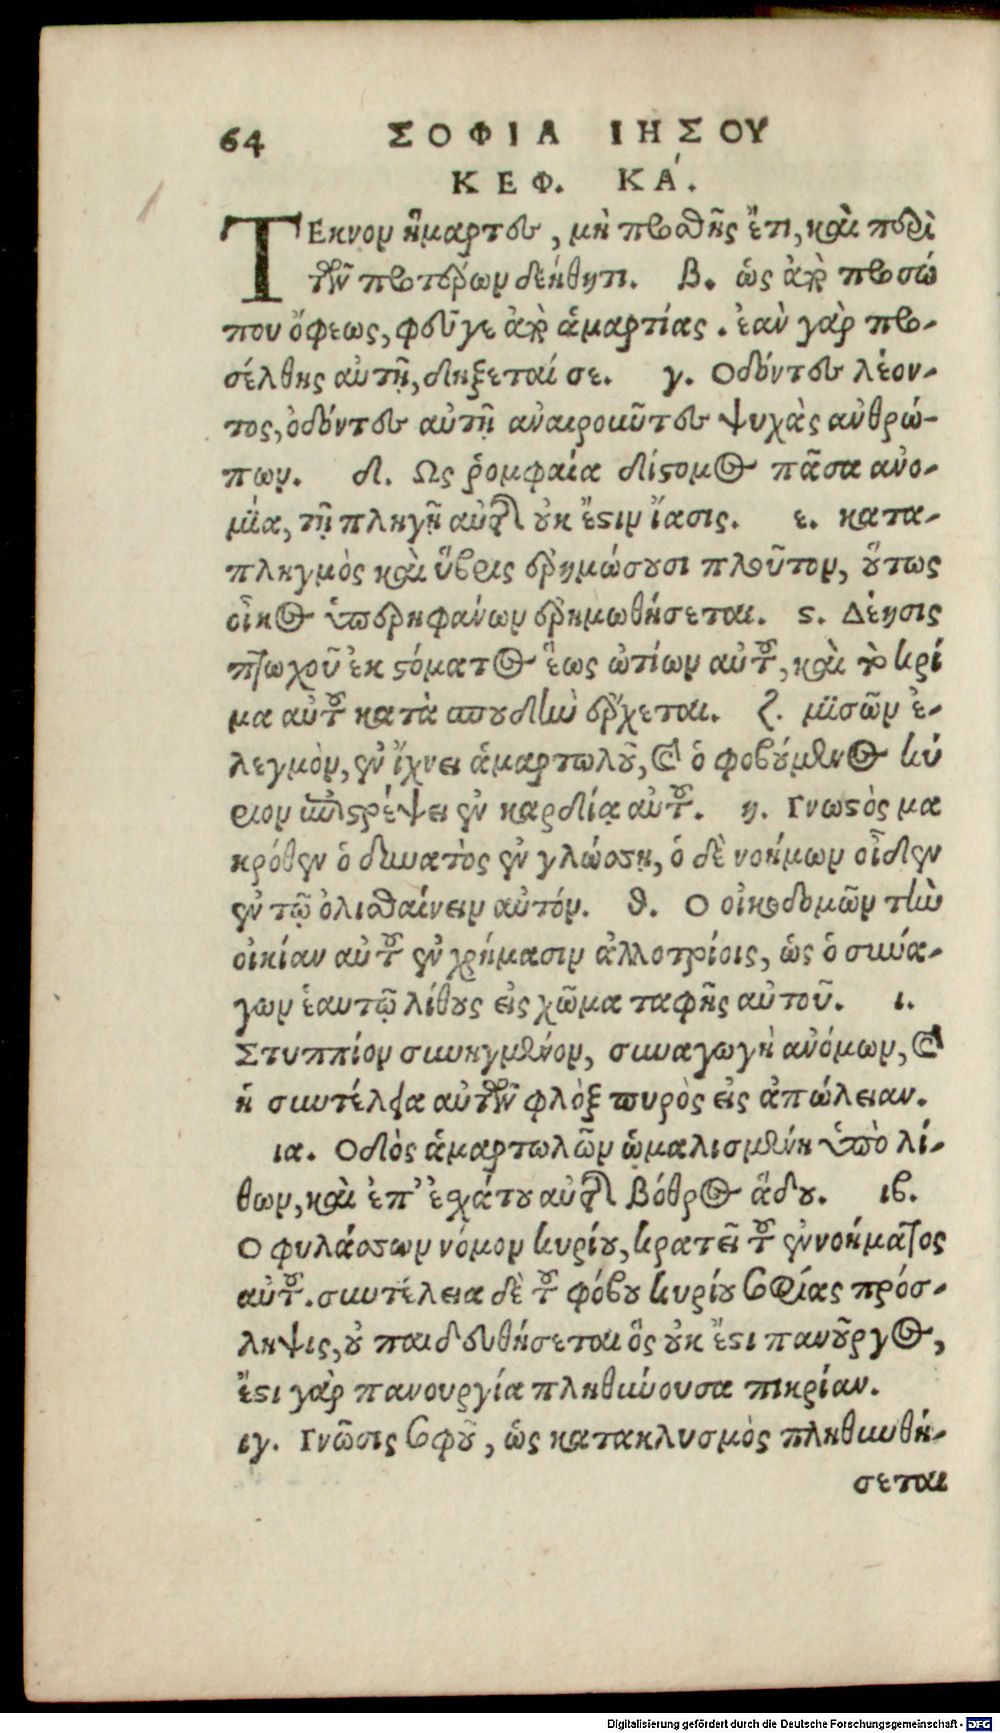 64 ΣΟΦΙΑ ΙΗΣΟΥ
ΚΕΦ. ΚΑ΄.
ΤΕκνον ἥμαρτες, μὴ προσθῇς ἔτι, καὶ περὶ
τῶν προτέρων δεήθητι. β. ὡς ἀπὸ προσώ
που ὄφεως, φεῦγε ἀπὸ ἁμαρτίας. ἐὰν γὰρ προ-
σέλθῃς αὐτῇ, δήξεταί σε. γ. Οδόντες λέον-
τος, ὀδόντες αὐτῆ ἀναιροῦντες ψυχὰς ἀνθρώ-
πων. δ. Ως ῥομφαία δίστομος πᾶσα ἀνο-
μία, τῇ πληγῇ αὐτῆς οὐκ ἔστιν ἴασις. ε. κατα-
πληγμὸς καὶ ὕβρις ἐρημώσουσι πλοῦτον, οὕτως
οἶκος ὑπερηφάνων ἐρημωθήσεται. ϛ. Δέησις
πτωχοῦ ἐκ στόματος ἕως ὠτίων αὐτοῦ, καὶ τὸ κρί
μα αὐτοῦ κατὰ σπουδὴν ἔρχεται. ζ. μισῶν ἐ-
λεγμὸν, ἐν ἴχνει ἁμαρτωλοῦ, καὶ ὁ φοβούμενος κύ
ριον ἐπιστρέψει ἐν καρδίᾳ αὐτοῦ. η. Γνωστὸς μα
κρόθεν ὁ δυνατὸς ἐν γλώσσῃ, ὁ δὲ νοήμων οἶδεν
ἐν τῷ ὀλισθαίνειν αὐτόν. θ. Ο οἰκοδομῶν τὴν
οἰκίαν αὐτοῦ ἐν χρήμασιν ἀλλοτρίοις, ὡς ὁ συνά-
γων ἑαυτῷ λίθους εἰς χῶμα ταφῆς αὐτοῦ. ι.
Στυππίον συνηγμένον, συναγωγὴ ἀνόμων, καὶ
ἡ συντέλεια αὐτῶν φλὸξ πυρὸς εἰς ἀπώλειαν.
ια. Οδὸς ἁμαρτωλῶν ὡμαλισμένη ὑπὸ λί-
θων, καὶ ἐπ' ἐσχάτου αὐτῆς βόθρος ᾅδου. ιβ.
Ο φυλάσσων νόμον κυρίου, κρατεῖ τοῦ ἐννοήματος
αὐτοῦ. συντέλεια δὲ τοῦ φόβου κυρίου σοφίας πρόσ-
ληψις, οὐ παιδευθήσεται ὃς οὐκ ἔστι πανοῦργος,
ἔστι γὰρ πανουργία πληθύνουσα πικρίαν.
ιγ. Γνῶσις σοφοῦ, ὡς κατακλυσμὸς πληθυνθή-
σεται
Digitalisierung gefördert durch die Deutsche Forschungsgemeinschaft - DFG